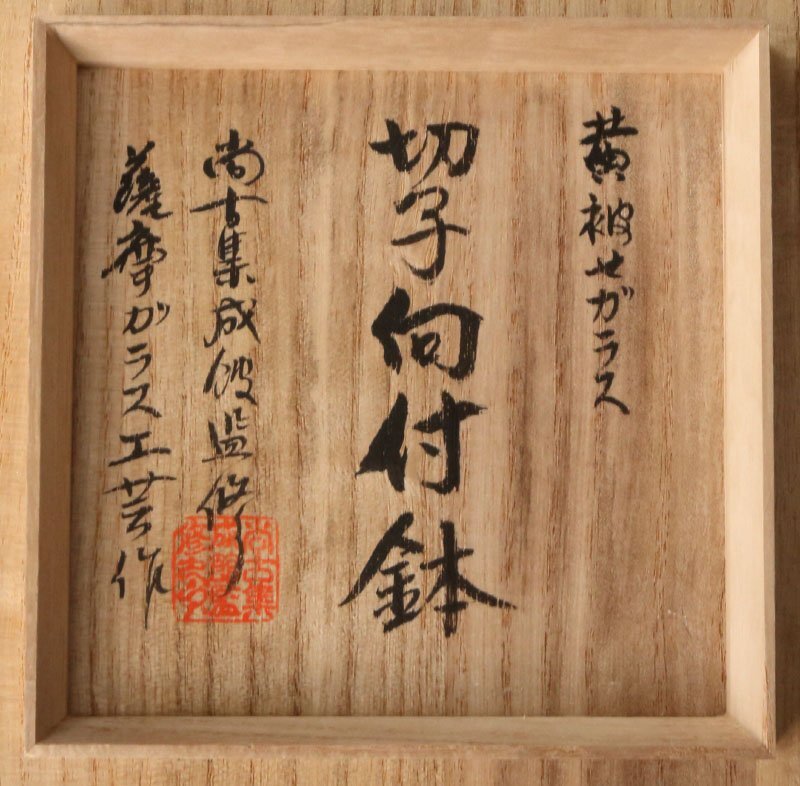 黄被せガラス
切子向付鉢
尚古集成館監修
薩摩ガラス工芸作